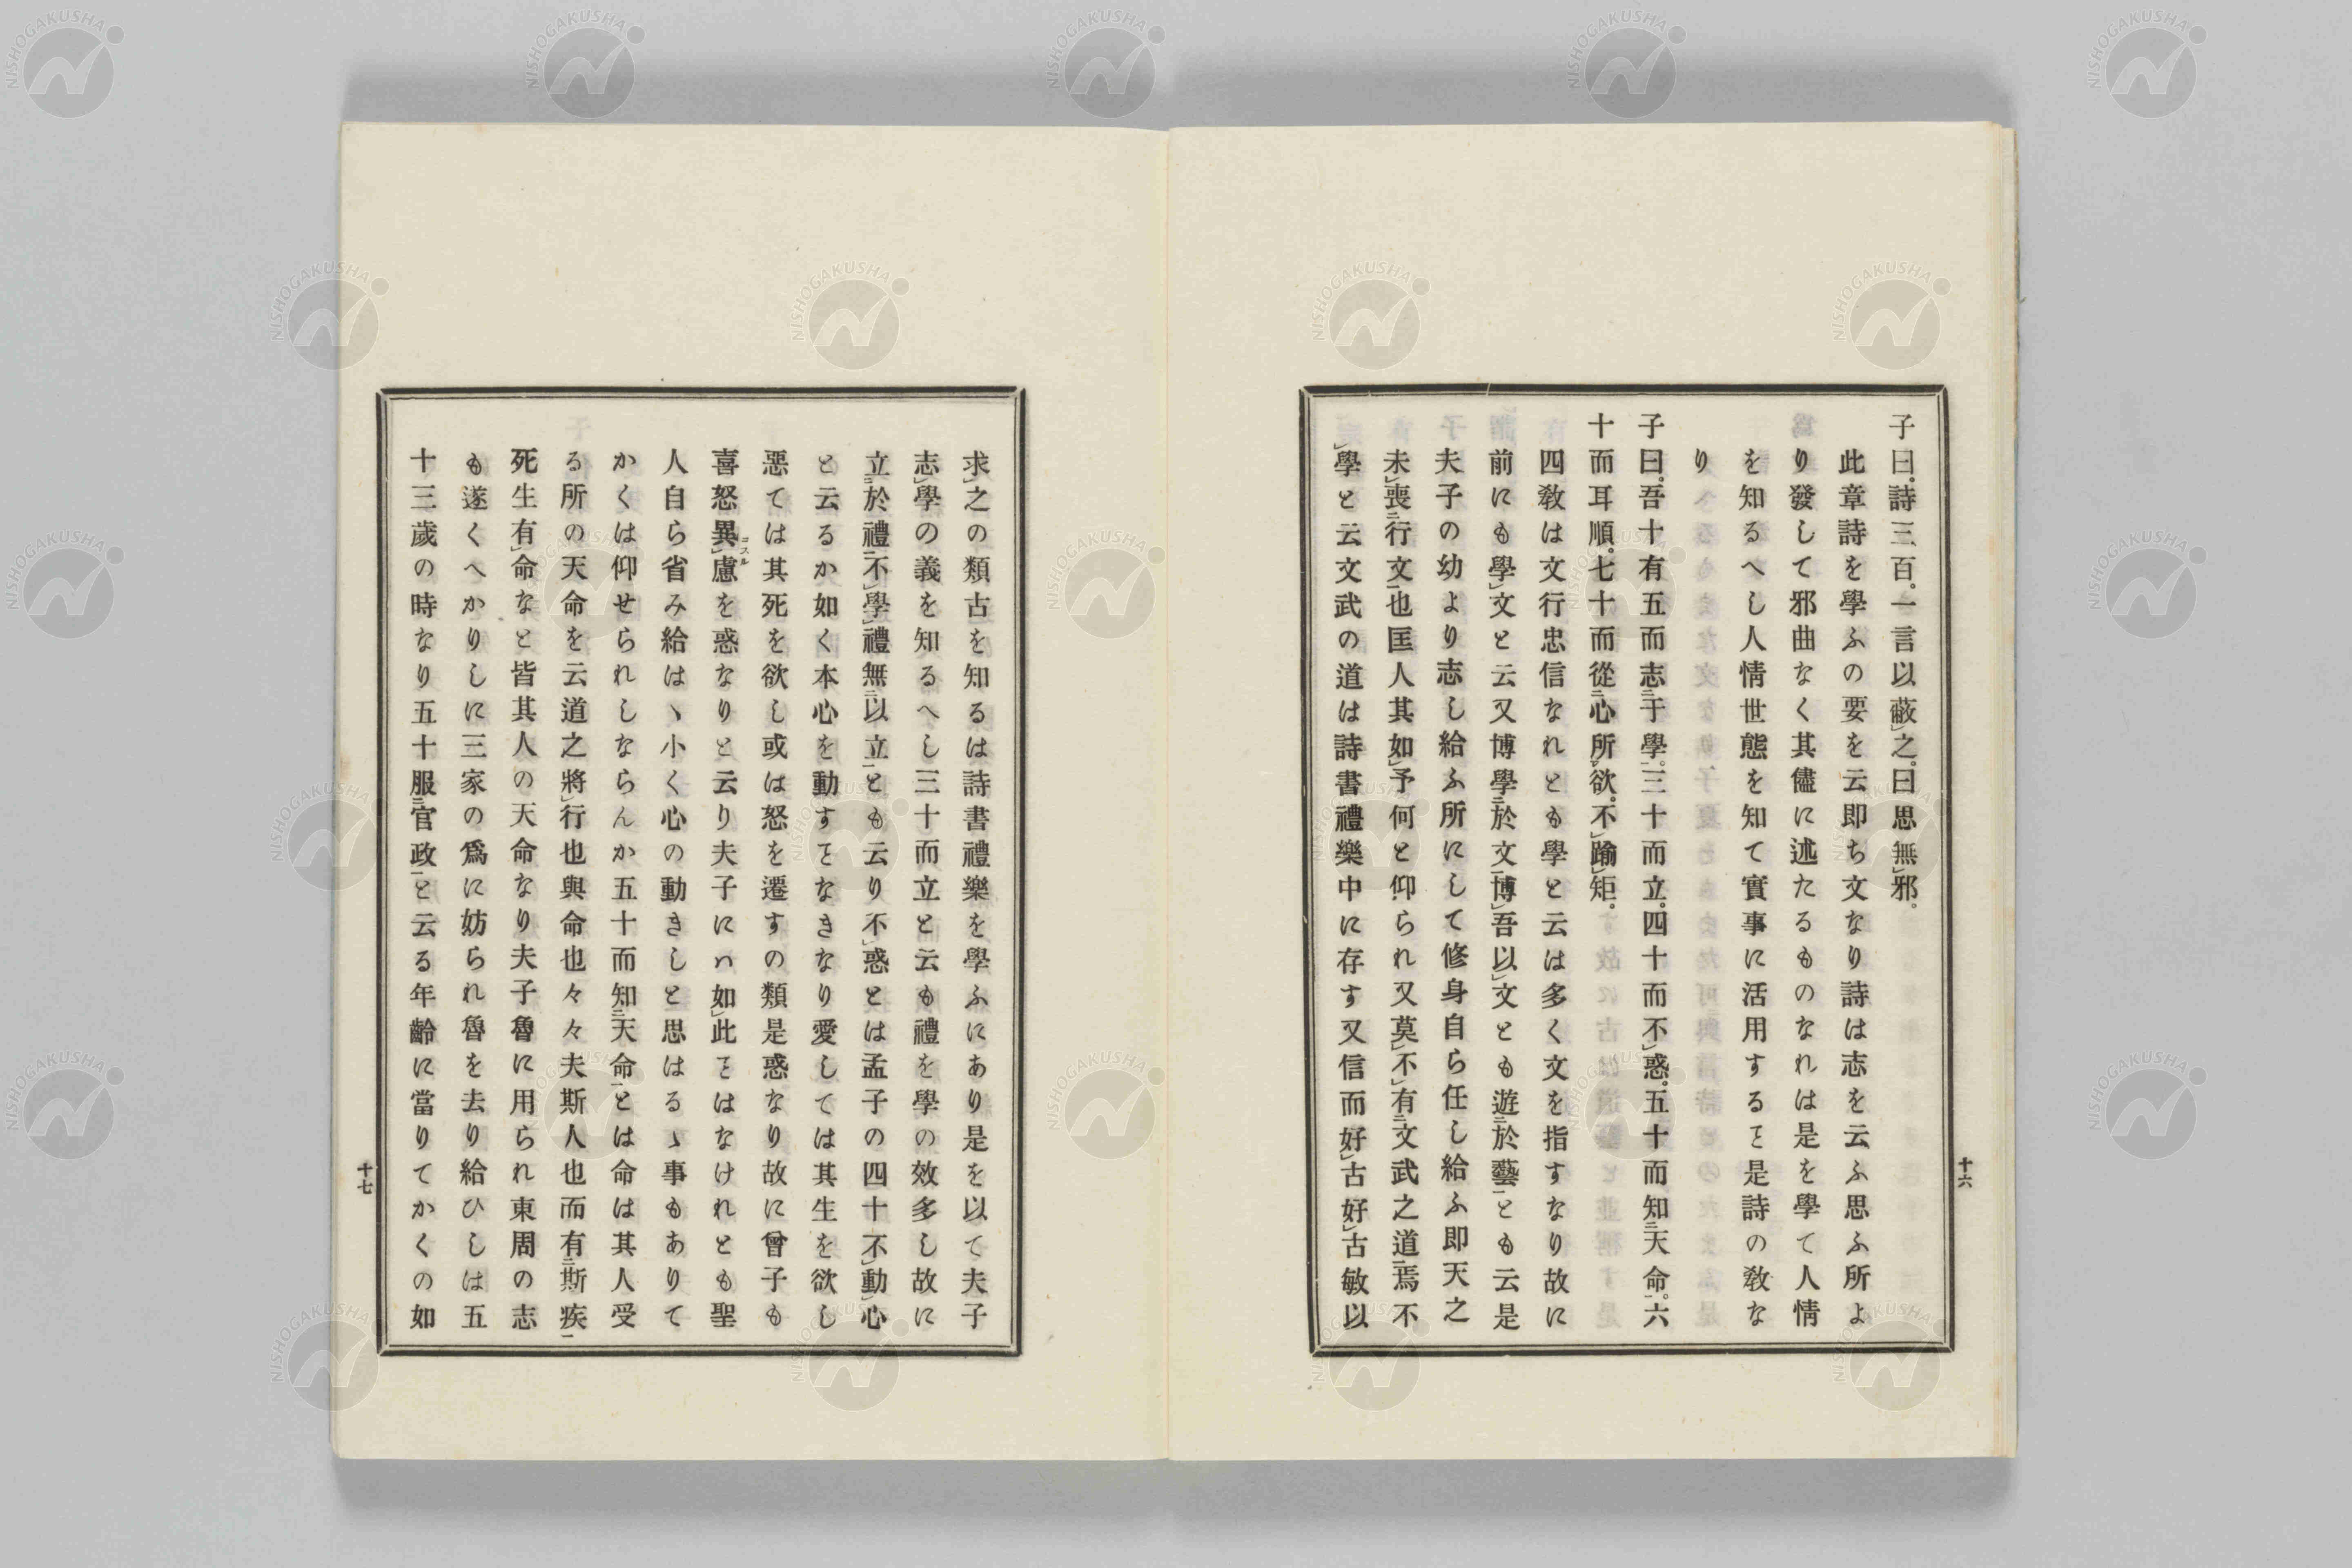 子曰。詩三百。一言以蔽レ之。曰思無レ邪。
此章詩を學ふの要を云即ち文なり詩は志を云ふ思ふ所よ
り發して邪曲なく其儘に述たるものなれは是を學て人情
を知るへし人情世態を知て實事に活用するヿ是詩の敎な
り
子曰。吾十有五而志二于學一。三十而立。四十而不レ惑。五十而知二天命一。六
十而耳順。七十而從二心所一レ欲。不レ踰レ矩。
四レ敎は文行忠信なれとも學と云は多く文を指すなり故に
前にも學レ文と云又博學二於文一博レ吾以レ文とも遊二於藝一とも云是
夫子の幼より志し給ふ所にして修身自ら任し給ふ即天之
未レ喪二行文一也匡人其如レ予何と仰られ又莫レ不レ有二文武之道一焉不
レ學と云文武の道は詩書禮樂中に存す又信而好レ古好レ古敏以
十六
求レ之の類古を知るは詩書禮樂を學ふにあり是を以て夫子
志レ學の義を知るへし三十而立と云も禮を學の效多し故に
立二於禮一不レ學レ禮無二以立一とも云り不レ惑とは孟子の四十不レ動レ心
と云るか如く本心を動すヿなきなり愛しては其生を欲し
惡ては其死を欲し或は怒を遷すの類是惑なり故に曾子も
喜怒異レ慮を惑なりと云り夫子にハ如レ此ヿはなけれとも聖
コスル
人自ら省み給はゝ小く心の動きしと思はるゝ事もありて
かくは仰せられしならんか五十而知二天命一とは命は其人受
る所の天命を云道之將レ行也與命也々々夫斯人也而有二斯疾一
死生有レ命なと皆其人の天命なり夫子魯に用られ東周の志
も遂くへかりしに三家の爲に妨られ魯を去り給ひしは五
十三歲の時なり五十服二官政一と云る年齡に當りてかくの如
十七
NISHOGAKUSHA